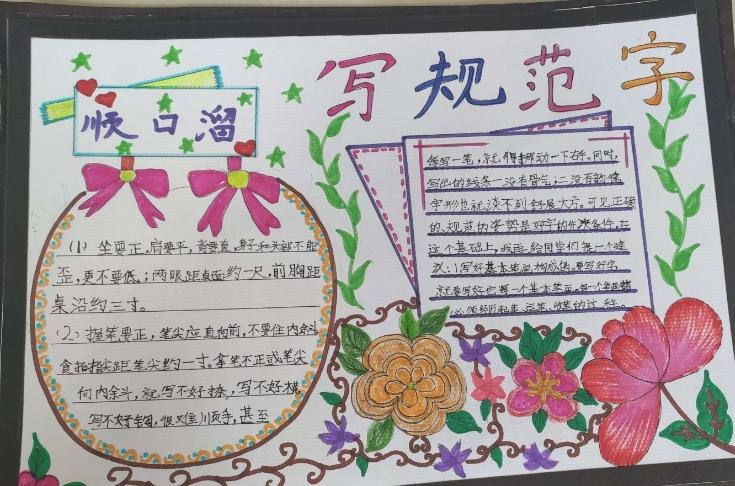 写规范字
顺口溜
(1) 坐要正,肩要平,背要直,身子和头部不能
歪,更不要低;两眼距桌面约一尺,前胸距
桌沿约三寸。
(2) 握笔要正,笔尖应直向前,不要往内斜
食指指尖距笔尖约一寸。拿笔不正或笔尖
向内斜,就写不好捺,写不好横
写不好钩,很难顺手,甚至
每写一笔,就得挪动一下右手。同时,
写出的线条一没有骨气;二没有韵律
字形也就谈不到舒展大方。可见正确
的、规范的姿势是好字的先决条件。在
这个基础上,我再给同学们提一个建
议:写好基本笔画构成的。要写好字,
就要写好每一个基本笔画。每一个笔画都
必须经历起笔、运笔、收笔的过程。